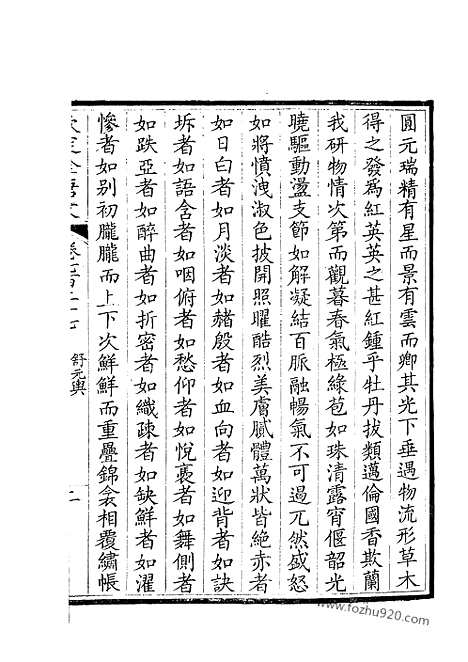 圓元瑞精有星而景有雲而卿其光下垂遇物流形草木
得之發爲紅英英之甚紅鍾乎牡丹拔類邁倫國香欺蘭
我研物情次第而觀暮春氣極綠苞如珠清露宵偃韶光
曉驅動盪支節如解凝結百脈融暢氣不可遏兀然盛怒
如將憤洩淑色披開照曜酷烈美膚膩體萬狀皆絕赤者
如日白者如月淡者如赭殷者如血向者如迎背者如訣
坼者如語含者如咽俯者如愁仰者如悅裛者如舞側者
如跌亞者如醉曲者如折密者如織疎者如缺鮮者如濯
慘者如别初朧朧而上下次鮮鮮而重疊錦衾相覆繡帳
欽定全唐文
卷七百二十七
舒元輿
www.fozhu920.com